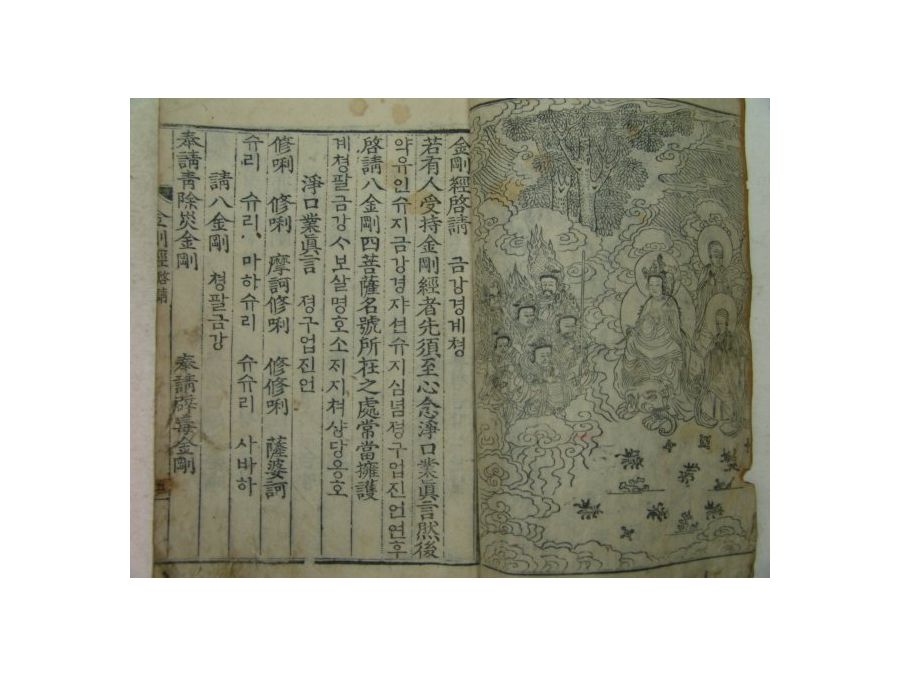 金剛經啓請 금강경계쳥
若有人受持金剛經者先須至心念淨口業眞言然後
약유인슈지금강경쟈션슈지심념졍구업진언연후
啓請八金剛四菩薩名號所在之處常當擁護
계쳥팔금강ᄉᆞ보살명호소ᄌᆡ지쳐샹당옹호
淨口業眞言 졍구업진언
修唎 修唎 摩訶修唎 修修唎 薩婆訶
슈리 슈리 마하슈리 슈슈리 사바하
請八金剛 쳥팔금강
奉請靑除灾金剛 奉請辟毒金剛
金剛經啓請